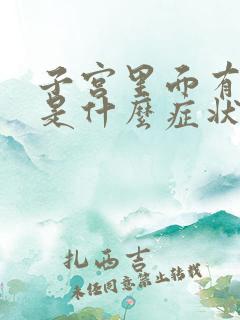 子宫里面有
是什麼症状
扎西吉
未经同意禁止转载